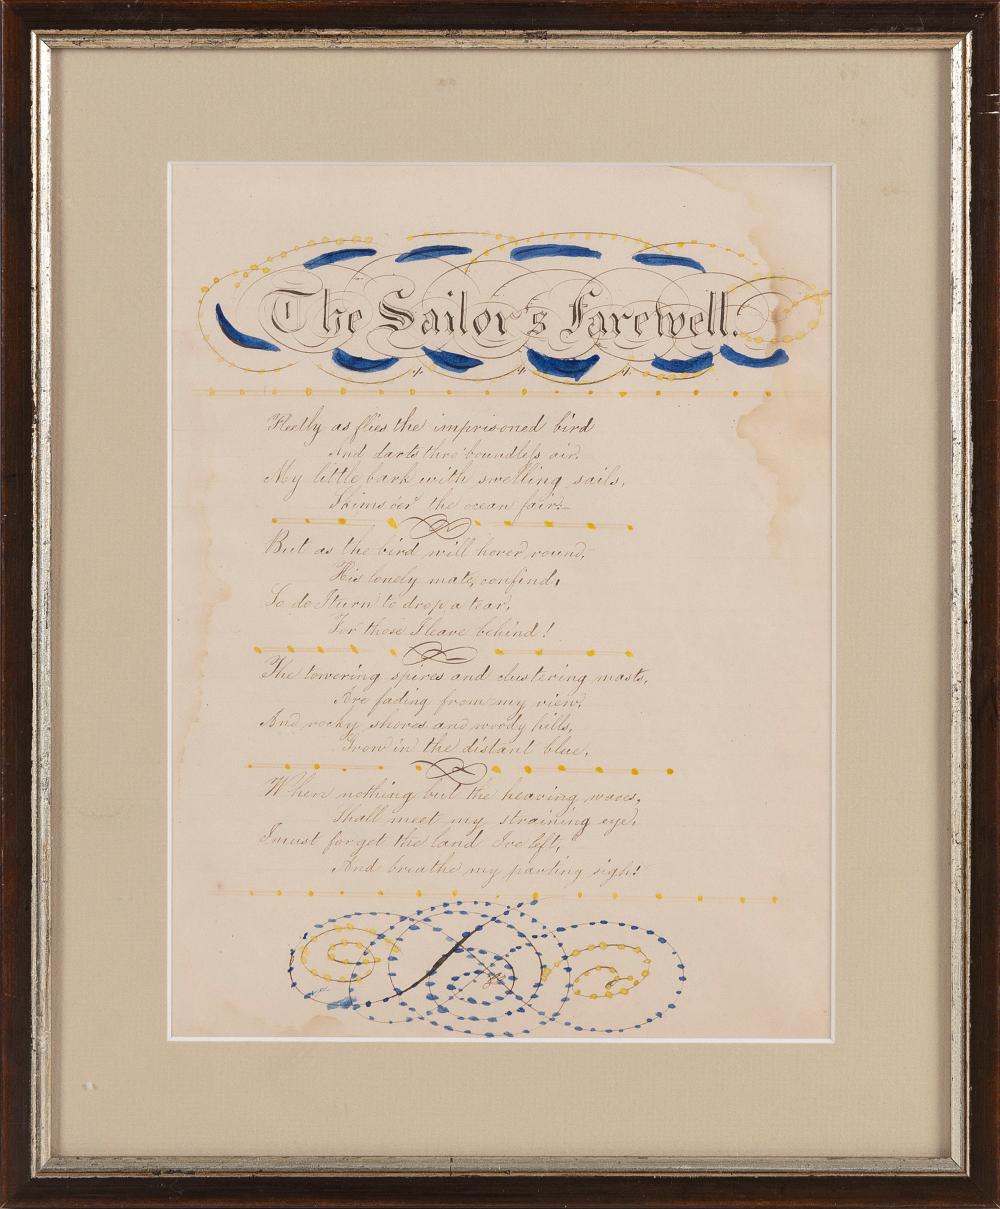 The Sailor's Farewell.
Fleetly as flies the imprisoned bird
And darts thro' boundless air.
My little bark with swelling sails,
Skims o'er the ocean fair.
But as the bird will hover round,
His lonely mate, confind,
So do I turn to drop a tear,
For those I leave behind!
The towering spires and clustering masts,
Are fading from my view.
And rocky shores and woody hills,
Grow in the distant blue.
When nothing but the heaving waves,
Shall meet my straining eye,
I must forget the land I've left,
And breathe my parting sigh!